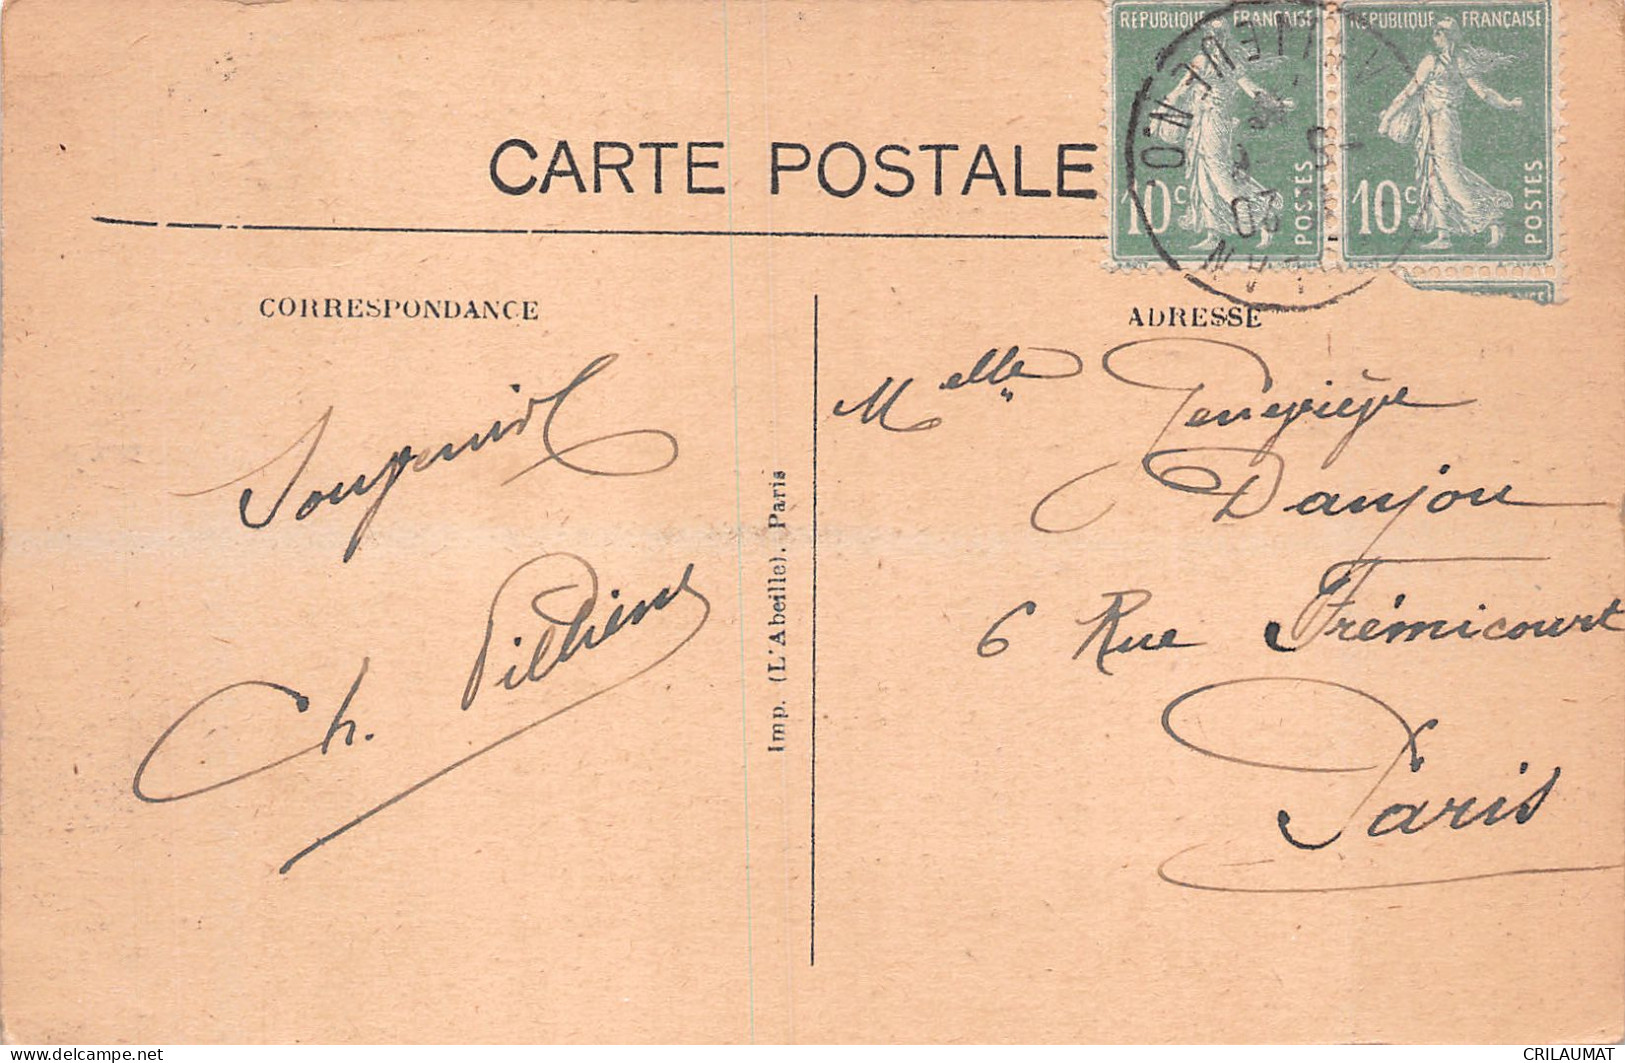 RÉPUBLIQUE FRANÇAISE
RÉPUBLIQUE FRANÇAISE
CARTE POSTALE
10c POSTES
10c POSTES
20
CORRESPONDANCE
ADRESSE
Souvenir
Ch. Pillien
Imp. (L'Abeille). Paris
Melle Geneviève
Danjou
6 Rue Frémicourt
Paris
www.delcampe.net
CRILAUMAT